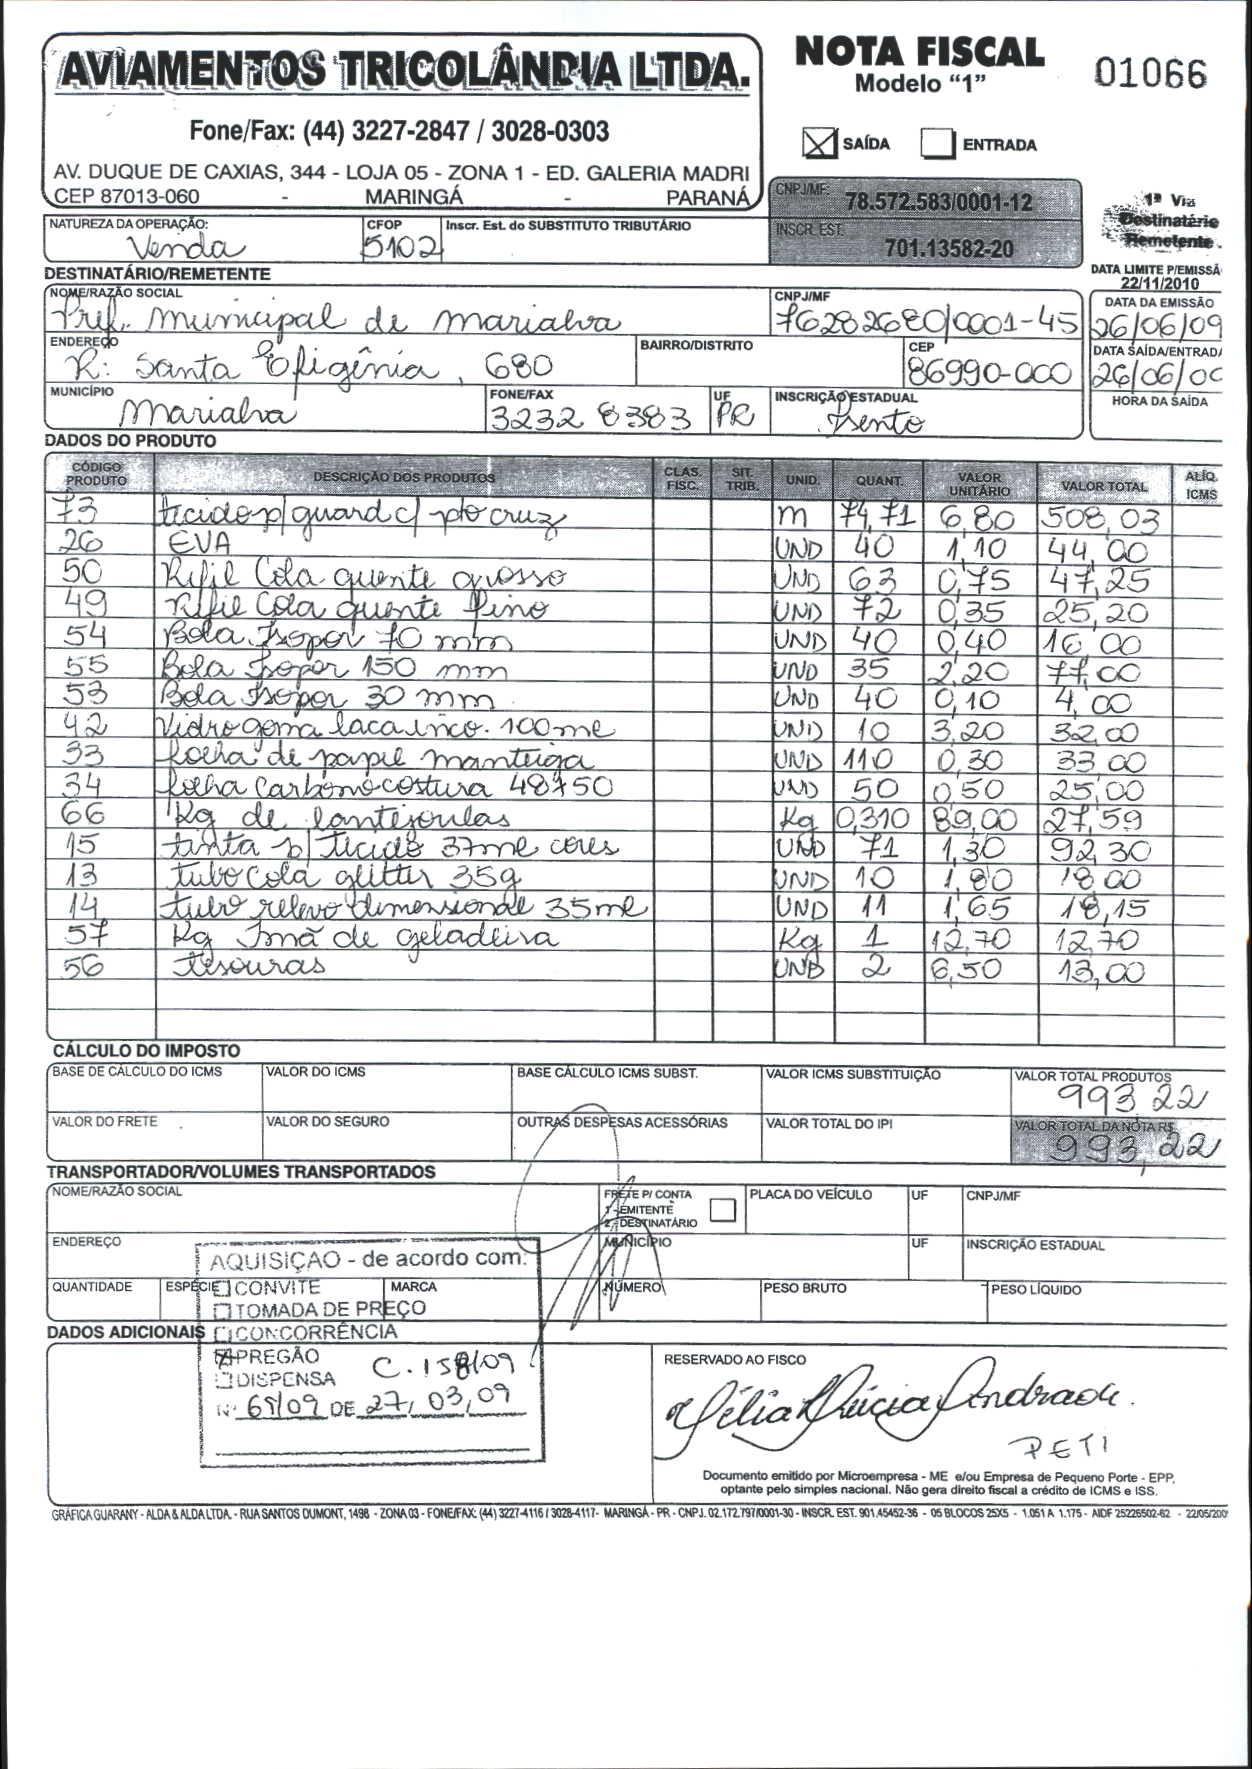 AVIAMENTOS TRICOLÂNDIA LTDA.
Fone/Fax: (44) 3227-2847 / 3028-0303
AV. DUQUE DE CAXIAS, 344 - LOJA 05 - ZONA 1 - ED. GALERIA MADRI
CEP 87013-060 - MARINGÁ - PARANÁ
NOTA FISCAL
Modelo “1”
01066
SAÍDA ENTRADA
CNPJ/MF: 78.572.583/0001-12
INSCR. EST. 701.13582-20
1ª Via
Destinatário
Remetente
NATUREZA DA OPERAÇÃO: CFOP Inscr. Est. do SUBSTITUTO TRIBUTÁRIO
Venda 5102
DATA LIMITE P/EMISSÃ
22/11/2010
DESTINATÁRIO/REMETENTE
NOME/RAZÃO SOCIAL CNPJ/MF DATA DA EMISSÃO
Pref. Municipal de Marialva 76282680/0001-45 26/06/09
ENDEREÇO BAIRRO/DISTRITO CEP DATA SAÍDA/ENTRADA
R: Santa Efigênia, 680 86990-000 26/06/0
MUNICÍPIO FONE/FAX UF INSCRIÇÃO ESTADUAL HORA DA SAÍDA
Marialva 3232 8383 PR Isento
DADOS DO PRODUTO
CÓDIGO PRODUTO DESCRIÇÃO DOS PRODUTOS CLAS. FISC. SIT. TRIB. UNID. QUANT. VALOR UNITÁRIO VALOR TOTAL ALÍQ. ICMS
73 tecido p/ guard c/ pto cruz m 74,71 6,80 508,03
26 EVA UND 40 1,10 44,00
50 Refil Cola quente grosso UND 63 0,75 47,25
49 Refil Cola quente fino UND 72 0,35 25,20
54 Bola Isopor 70 mm UND 40 0,40 16,00
55 Bola Isopor 150 mm UND 35 2,20 77,00
53 Bola Isopor 30 mm UND 40 0,10 4,00
42 Vidro goma laca inco. 100ml UND 10 3,20 32,00
33 folha de papel manteiga UND 110 0,30 33,00
34 folha carbono costura 48x50 UND 50 0,50 25,00
66 Kg de lantejoulas Kg 0,310 89,00 27,59
15 tinta p/ tecido 37ml cores UND 71 1,30 92,30
13 tubo cola glitter 35g UND 10 1,80 18,00
14 tubo relevo dimensional 35ml UND 11 1,65 18,15
57 Kg Imã de geladeira Kg 1 12,70 12,70
56 tesouras UND 2 6,50 13,00
CÁLCULO DO IMPOSTO
BASE DE CÁLCULO DO ICMS VALOR DO ICMS BASE CÁLCULO ICMS SUBST. VALOR ICMS SUBSTITUIÇÃO VALOR TOTAL PRODUTOS
993,22
VALOR DO FRETE VALOR DO SEGURO OUTRAS DESPESAS ACESSÓRIAS VALOR TOTAL DO IPI VALOR TOTAL DA NOTA R$
993,22
TRANSPORTADOR/VOLUMES TRANSPORTADOS
NOME/RAZÃO SOCIAL FRETE P/ CONTA PLACA DO VEÍCULO UF CNPJ/MF
1 - EMITENTE
2 - DESTINATÁRIO
ENDEREÇO MUNICÍPIO UF INSCRIÇÃO ESTADUAL
QUANTIDADE ESPÉCIE MARCA NÚMERO PESO BRUTO PESO LÍQUIDO
AQUISIÇÃO - de acordo com:
CONVITE
TOMADA DE PREÇO
CONCORRÊNCIA
PREGÃO C. 158/09
DISPENSA
Nº 65/09 DE 27, 03, 09
DADOS ADICIONAIS
RESERVADO AO FISCO
Célia Lúcia Andrade
PETI
Documento emitido por Microempresa - ME e/ou Empresa de Pequeno Porte - EPP,
optante pelo simples nacional. Não gera direito fiscal a crédito de ICMS e ISS.
GRÁFICA GUARANY - ALDA & ALDA LTDA. - RUA SANTOS DUMONT, 1498 - ZONA 03 - FONE/FAX: (44) 3227-4116 / 3028-4117- MARINGÁ - PR - CNPJ. 02.172.797/0001-30 - INSCR. EST. 901.45452-36 - 05 BLOCOS 25X5 - 1.051 A 1.175 - AIDF 25226502-62 - 22/05/200